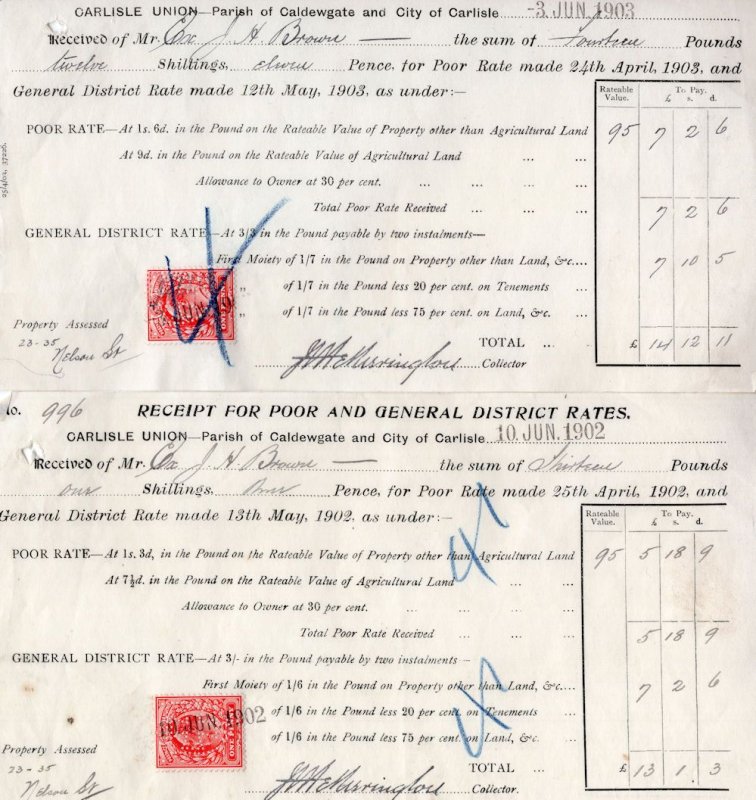 CARLISLE UNION—Parish of Caldewgate and City of Carlisle -3 JUN 1903
Received of Mr. Ex J H Brown — the sum of Fourteen Pounds
twelve Shillings, eleven Pence, for Poor Rate made 24th April, 1903, and
General District Rate made 12th May, 1903, as under:—
Rateable Value. To Pay. £ s. d.
POOR RATE—At 1s. 6d. in the Pound on the Rateable Value of Property other than Agricultural Land 95 7 2 6
At 9d. in the Pound on the Rateable Value of Agricultural Land ... ...
Allowance to Owner at 30 per cent. ... ... ... ...
Total Poor Rate Received ... ... ... 7 2 6
GENERAL DISTRICT RATE—At 3/3 in the Pound payable by two instalments—
First Moiety of 1/7 in the Pound on Property other than Land, &c.... 7 10 5
„ of 1/7 in the Pound less 20 per cent. on Tenements ...
„ of 1/7 in the Pound less 75 per cent. on Land, &c. ...
25/4/02, 37226.
Property Assessed
23-35
Nelson St
TOTAL ... £ 14 12 11
Collector
No. 996 RECEIPT FOR POOR AND GENERAL DISTRICT RATES.
CARLISLE UNION—Parish of Caldewgate and City of Carlisle 10 JUN. 1902
Received of Mr. Ex J H Brown — the sum of Thirteen Pounds
one Shillings, three Pence, for Poor Rate made 25th April, 1902, and
General District Rate made 13th May, 1902, as under:—
Rateable Value. To Pay. £ s. d.
POOR RATE—At 1s. 3d, in the Pound on the Rateable Value of Property other than Agricultural Land 95 5 18 9
At 7½d. in the Pound on the Rateable Value of Agricultural Land ... ...
Allowance to Owner at 30 per cent. ... ... ... ...
Total Poor Rate Received ... ... ... 5 18 9
GENERAL DISTRICT RATE—At 3/- in the Pound payable by two instalments –
First Moiety of 1/6 in the Pound on Property other than Land, &c.... 7 2 6
„ of 1/6 in the Pound less 20 per cent. on Tenements ...
„ of 1/6 in the Pound less 75 per cent. on Land, &c. ...
10. JUN. 1902
ONE PENNY
Property Assessed
23-35
Nelson St
TOTAL ... £ 13 1 3
Collector.